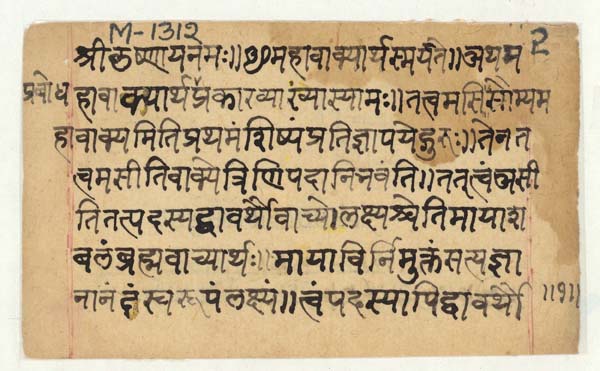 M-1312
2
श्रीकृष्णायनमः॥ॐमहावाक्यार्थस्मर्यते॥अथम
प्रबोध
हावाक्यार्थप्रकारव्याख्यास्यामः॥तत्वमसिसौम्यम
हावाक्यमितिप्रथमंशिष्यंप्रतिज्ञापयेद्गुरुः॥तेनत
त्वमसीतिवाक्येत्रिणिपदानिनवंति॥तत्त्वंअसी
तितत्पदस्यद्वावर्थौवाच्यो।लक्ष्यश्चेतिमायाश
बलंब्रह्मवाच्यार्थः॥मायाविर्निमुक्तंसत्यज्ञा
नानंदंस्वरूपंलक्ष्यं॥त्वंपदस्यापिद्वावर्थौ
॥१॥